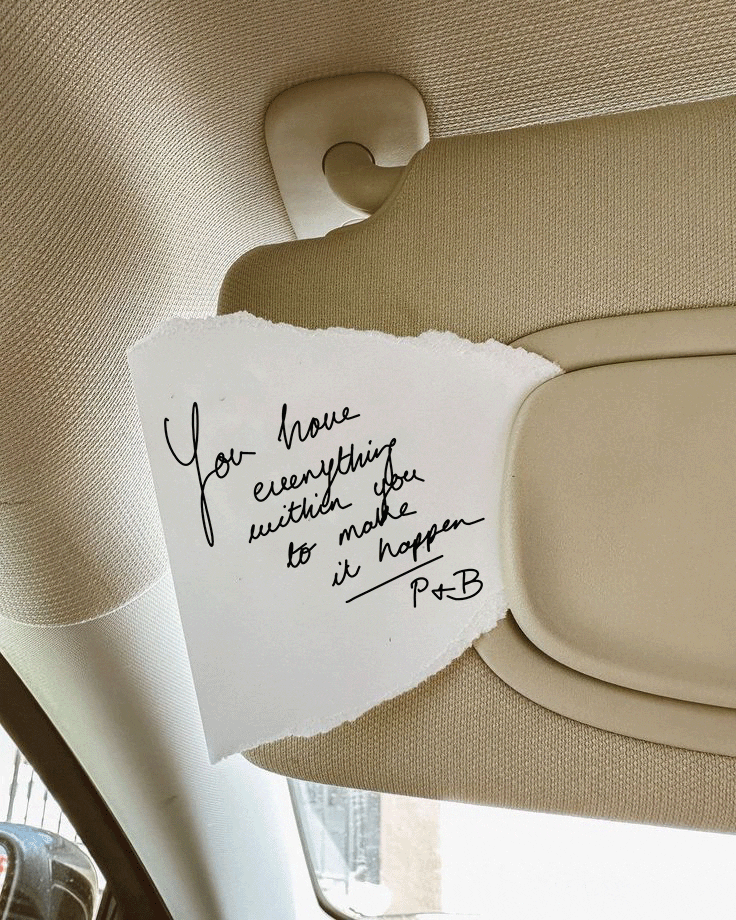 You have
everything
within you
to make
it happen
P+B